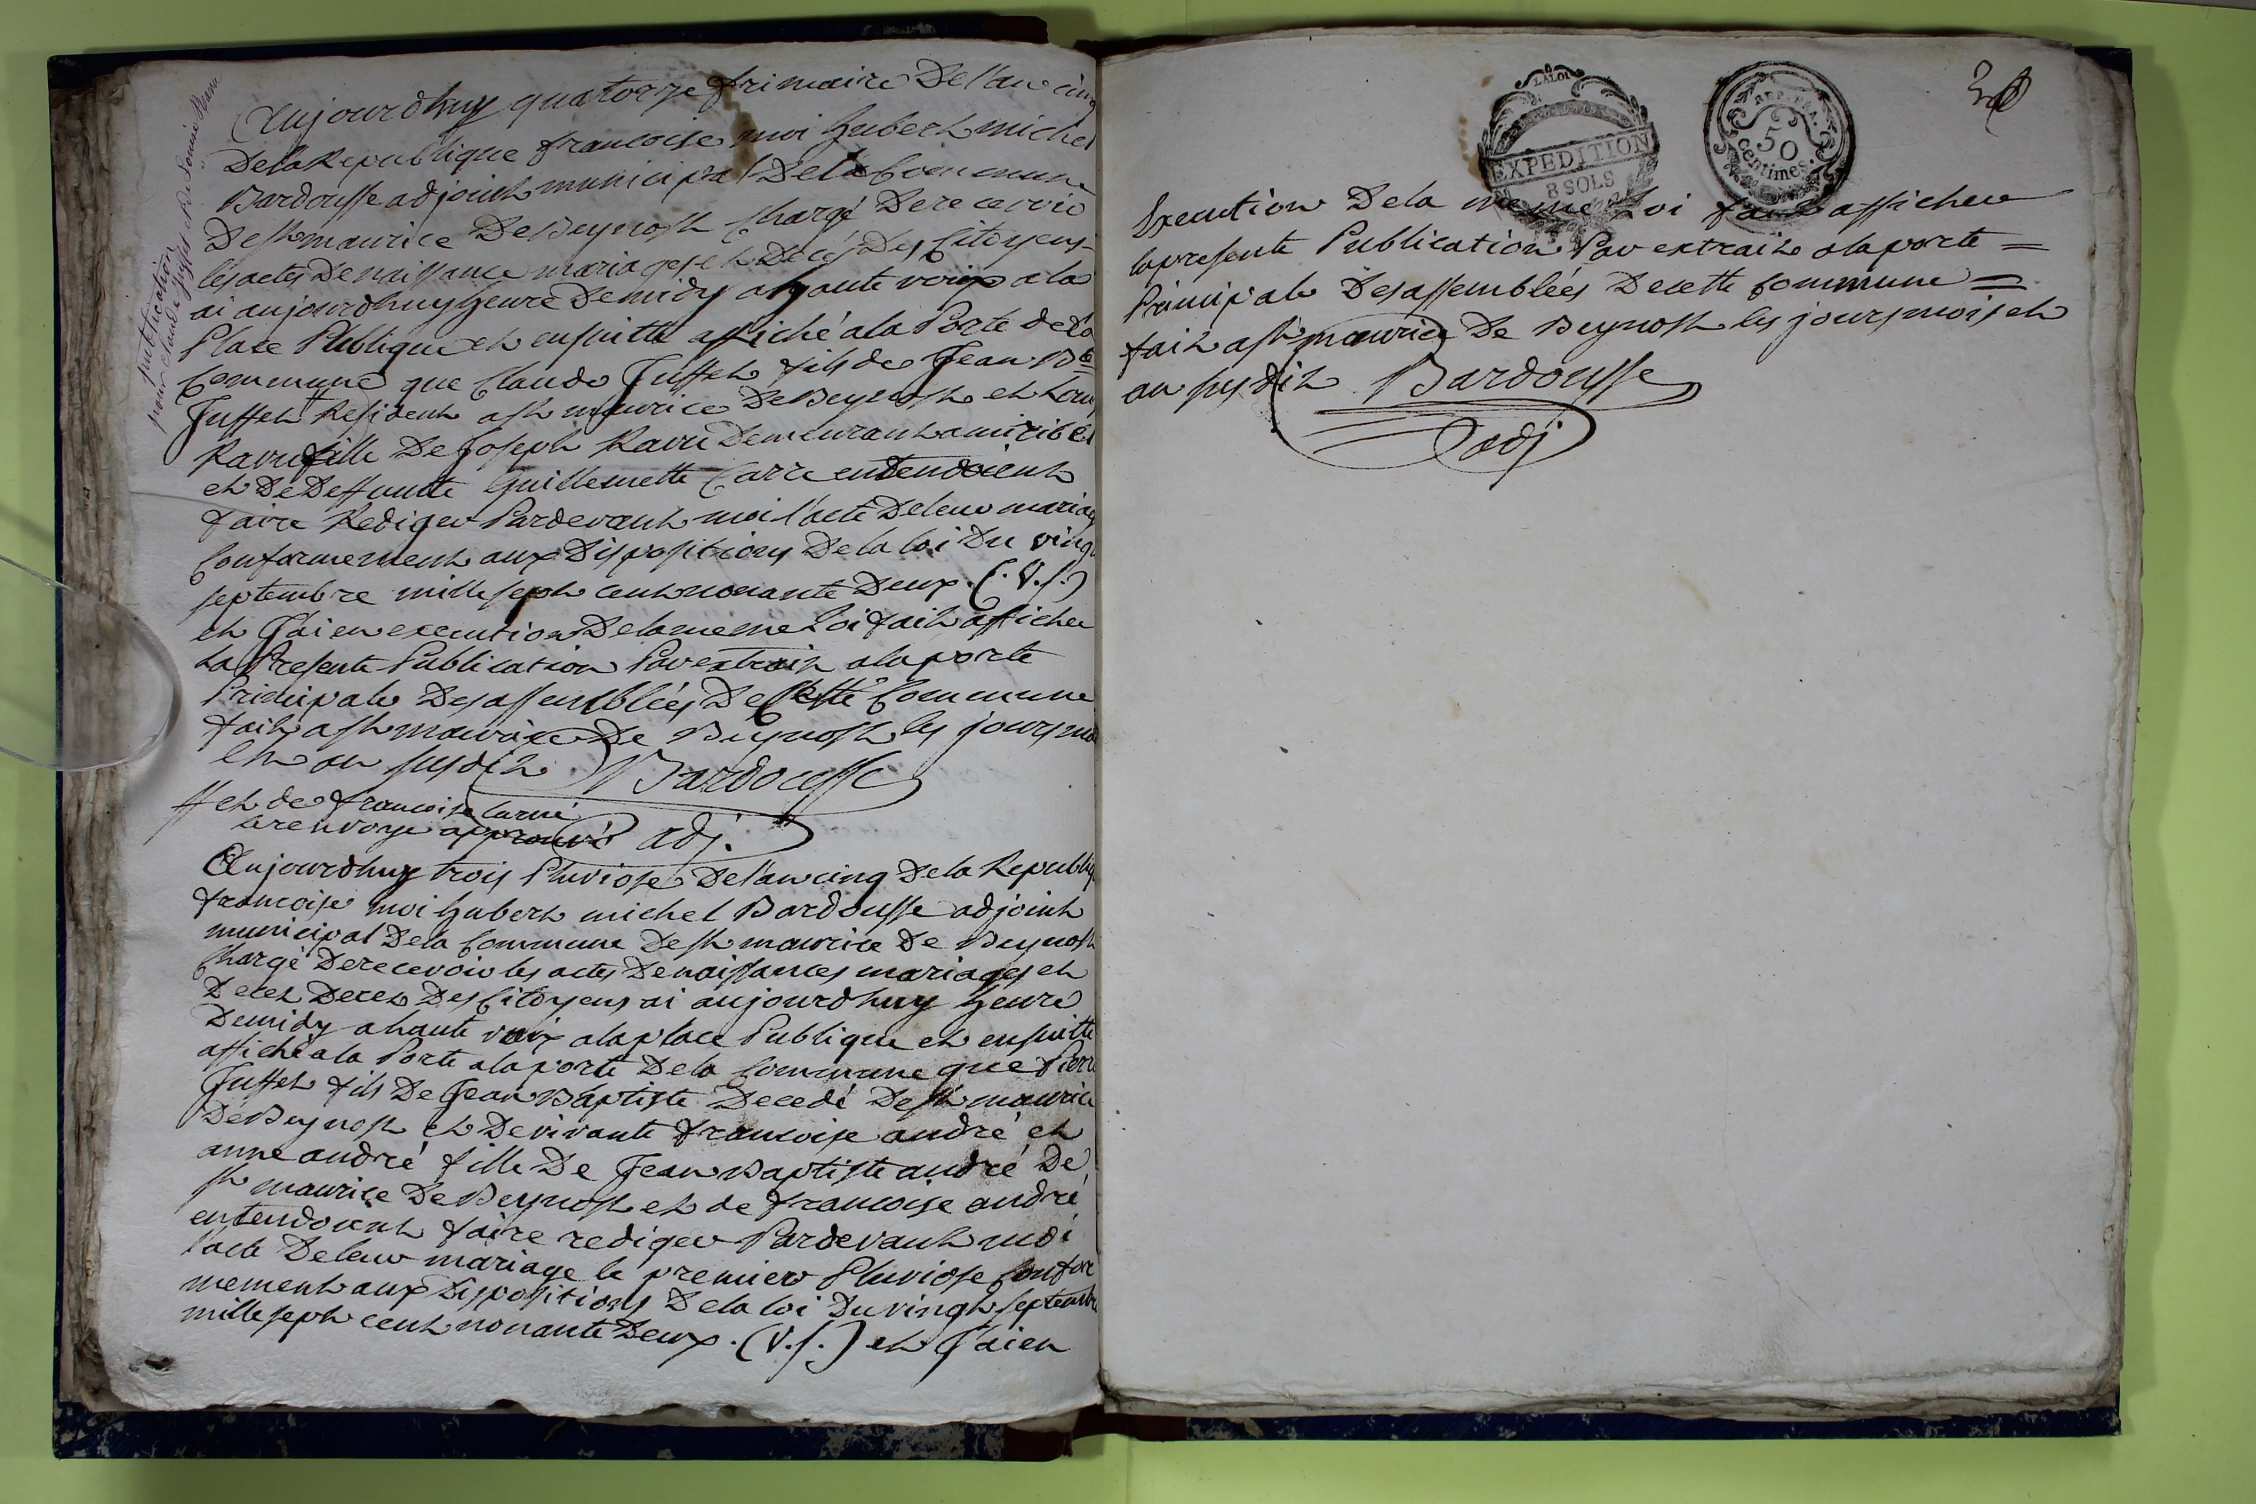 publication
pour claude juffet
Aujourdhuy quatorze frimaire De l'an cinq
De la Republique francoise moi hubert michel
Bardousse adjoint municipal De la Commune
De st maurice De Beynost Chargé De recevoir
les actes De naissance mariages et Decés Des Citoyens
ai aujourdhuy heure De midy a haute voix a la
Place Publique et ensuitte affiché a la Porte de la
Commune que Claude Juffet fils de Jean Bte
Juffet Resident a st maurice De Beynost et
Ravu fille De Joseph Ravu Demeurant a miribel
et De Deffunte Guillemette Carre entendoient
faire Rediger Pardevant moi l'acte De leur mariage
Conformement aux Dispositions De la loi Du vingt
septembre mille sept cent nonante Deux. (. V. s.)
et J'ai en execution De la meme Loi fait afficher
La Presente Publication Par extrait a la porte
Principale Des assemblées De Cette Commune
fait a st maurice De Beynost les jours mois
et an susdit Bardousse
# et de francoise carrié
le renvoye approuvé adj.
Aujourdhuy trois Pluviose De l'an cinq De la Republique
francoise moi hubert michel Bardousse adjoint
municipal De la Commune De st maurice De Beynost
Chargé De recevoir les actes De naissances mariages et
Decet Decet Des Citoyens ai aujourdhuy heure
De midy a haute voix a la place Publique et ensuitte
affiché a la Porte a la porte De la Commune que Pierre
Juffet fils De Jean Baptiste Decedé De st maurice
De Beynost et De vivante francoise andré et
anne andré fille De Jean Baptiste andré De
st maurice De Beynost et de francoise andré
entendoient faire rediger Pardevant moi
l'acte De leur mariage le premier Pluviose Confor
mement aux Dispositions De la loi Du vingt septembre
mille sept cent nonante Deux. (V. s.) et J'ai en
LA LOI
EXPEDITION
8 SOLS
REP. FRA.
50
centimes.
Execution De la meme Loi fait afficher
la presente Publication Par extrait a la porte =
Principale Des assemblées De cette Commune =
fait a st maurice De Beynost les jours mois et
an susdit Bardousse
adj